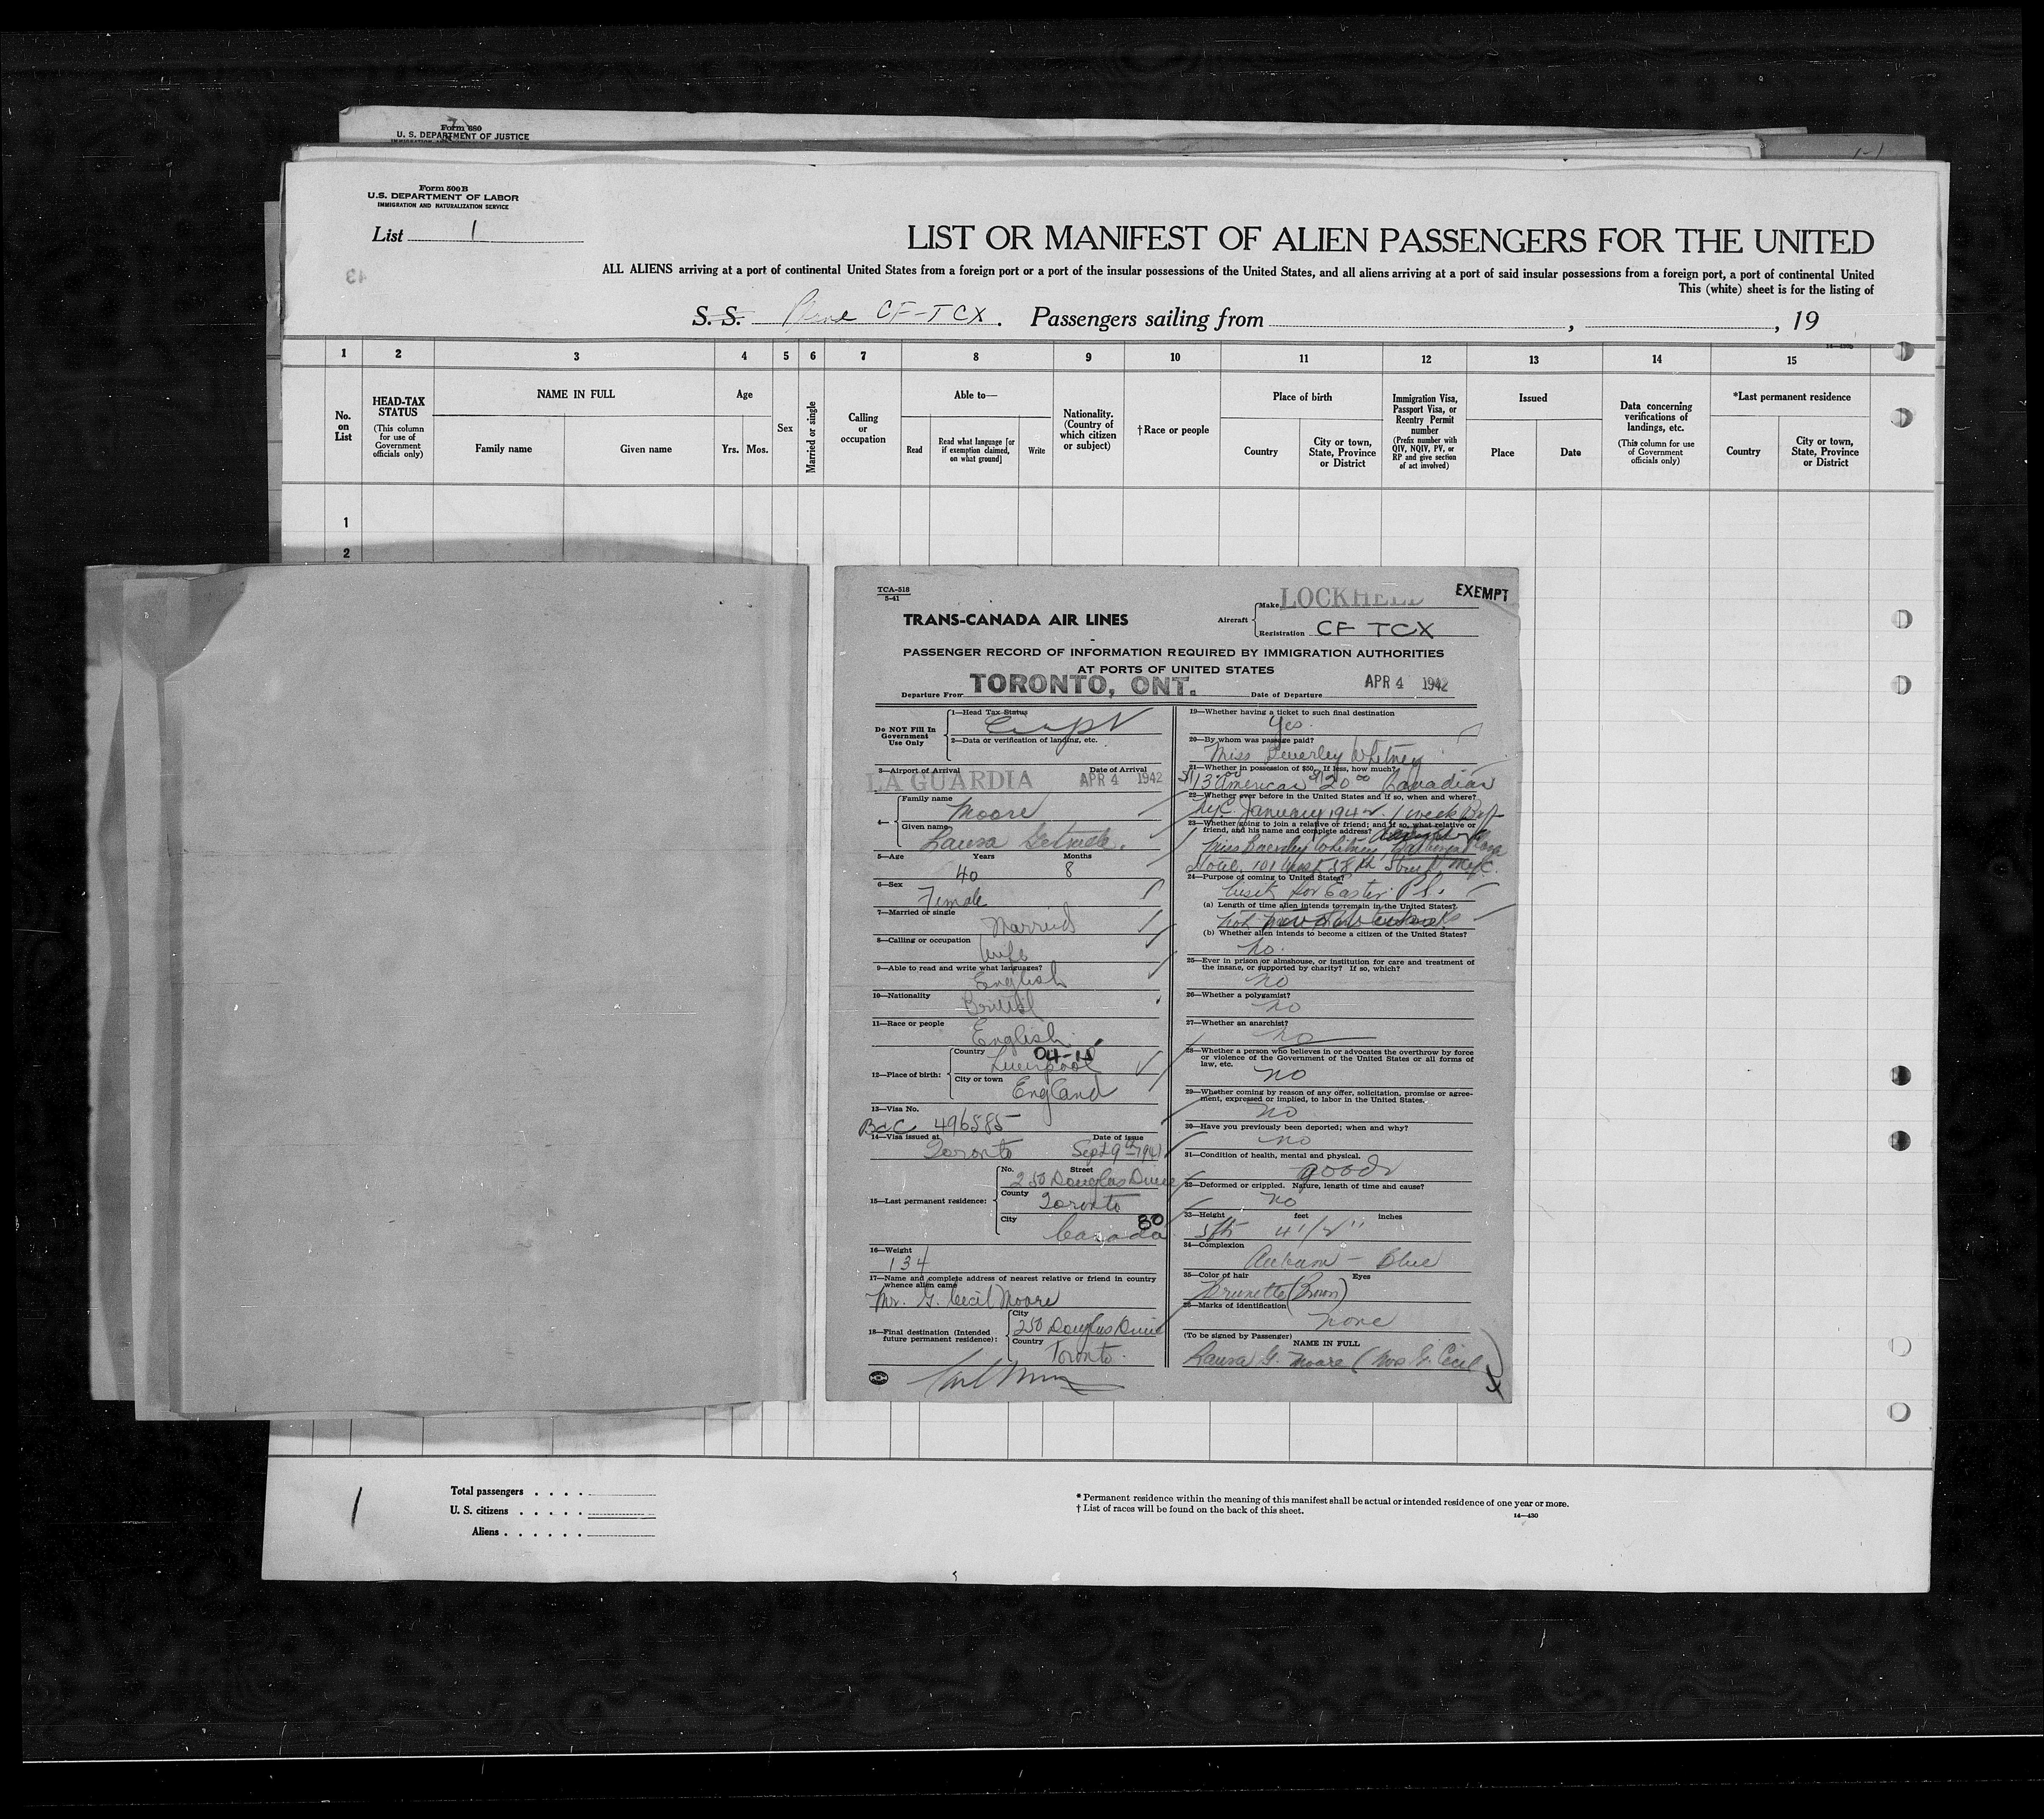 Form 680
U. S. DEPARTMENT OF JUSTICE
Form 500 B
U.S. DEPARTMENT OF LABOR
IMMIGRATION AND NATURALIZATION SERVICE
List 1
LIST OR MANIFEST OF ALIEN PASSENGERS FOR THE UNITED
ALL ALIENS arriving at a port of continental United States from a foreign port or a port of the insular possessions of the United States, and all aliens arriving at a port of said insular possessions from a foreign port, a port of continental United
This (white) sheet is for the listing of
S. S. Plane CF-TCX. Passengers sailing from , , 19
1 2 3 4 5 6 7 8 9 10 11 12 13 14 15
No. on List
HEAD-TAX STATUS
(This column for use of Government officials only)
NAME IN FULL
Family name
Given name
Age
Yrs. Mos.
Sex
Married or single
Calling or occupation
Able to—
Read
Read what language [or if exemption claimed, on what ground]
Write
Nationality. (Country of which citizen or subject)
†Race or people
Place of birth
Country
City or town, State, Province or District
Immigration Visa, Passport Visa, or Reentry Permit number
(Prefix number with QIV, NQIV, PV, or RP and give section of act involved)
Issued
Place
Date
Data concerning verifications of landings, etc.
(This column for use of Government officials only)
*Last permanent residence
Country
City or town, State, Province or District
1
2
TCA-518
5-41
TRANS-CANADA AIR LINES
Aircraft
Make LOCKHEED
Registration CF TCX
EXEMPT
PASSENGER RECORD OF INFORMATION REQUIRED BY IMMIGRATION AUTHORITIES
AT PORTS OF UNITED STATES
Departure From TORONTO, ONT. Date of Departure APR 4 1942
Do NOT Fill In Government Use Only
1—Head Tax Status
2—Data or verification of landing, etc.
3—Airport of Arrival Date of Arrival
LA GUARDIA APR 4 1942
4—
Family name
Moore
Given name
Laura Gertrude.
5—Age Years Months
40 8
6—Sex
Female
7—Married or single
Married
8—Calling or occupation
Wife
9—Able to read and write what languages?
English
10—Nationality
British
11—Race or people
English
12—Place of birth:
Country
04-10
Liverpool
City or town
England
13—Visa No.
BCC 496585
14—Visa issued at Date of issue
Toronto Sept 9th 1941
15—Last permanent residence:
No. Street
250 Douglas Drive
County
Toronto
City
80
Canada
16—Weight
134
17—Name and complete address of nearest relative or friend in country whence alien came
Mr. G. Cecil Moore
18—Final destination (Intended future permanent residence):
City
250 Douglas Drive
Country
Toronto.
19—Whether having a ticket to such final destination
Yes.
20—By whom was passage paid?
Miss Beverley Whitney
21—Whether in possession of $50. If less, how much?
$13.00 American $20.00 Canadian
22—Whether ever before in the United States and if so, when and where?
N.Y.C. January 1942. 1 week
23—Whether going to join a relative or friend; and if so, what relative or friend, and his name and complete address?
Miss Beverley Whitney Barbizon Plaza
Hotel, 101 West 58th Street, N.Y.C.
24—Purpose of coming to United States?
Visit for Easter
(a) Length of time alien intends to remain in the United States?
(b) Whether alien intends to become a citizen of the United States?
no.
25—Ever in prison or almshouse, or institution for care and treatment of the insane, or supported by charity? If so, which?
no
26—Whether a polygamist?
no
27—Whether an anarchist?
no
28—Whether a person who believes in or advocates the overthrow by force or violence of the Government of the United States or all forms of law, etc.
no
29—Whether coming by reason of any offer, solicitation, promise or agreement, expressed or implied, to labor in the United States.
no
30—Have you previously been deported; when and why?
no
31—Condition of health, mental and physical.
good
32—Deformed or crippled. Nature, length of time and cause?
no
33—Height feet inches
5ft 4 1/2"
34—Complexion
Auburn - Blue
35—Color of hair Eyes
Brunette (Brown)
36—Marks of identification
none
(To be signed by Passenger)
NAME IN FULL
Laura G. Moore (Mrs G. Cecil)
1
Total passengers . . . .
U. S. citizens . . . . .
Aliens . . . . . .
* Permanent residence within the meaning of this manifest shall be actual or intended residence of one year or more.
† List of races will be found on the back of this sheet.
14—430